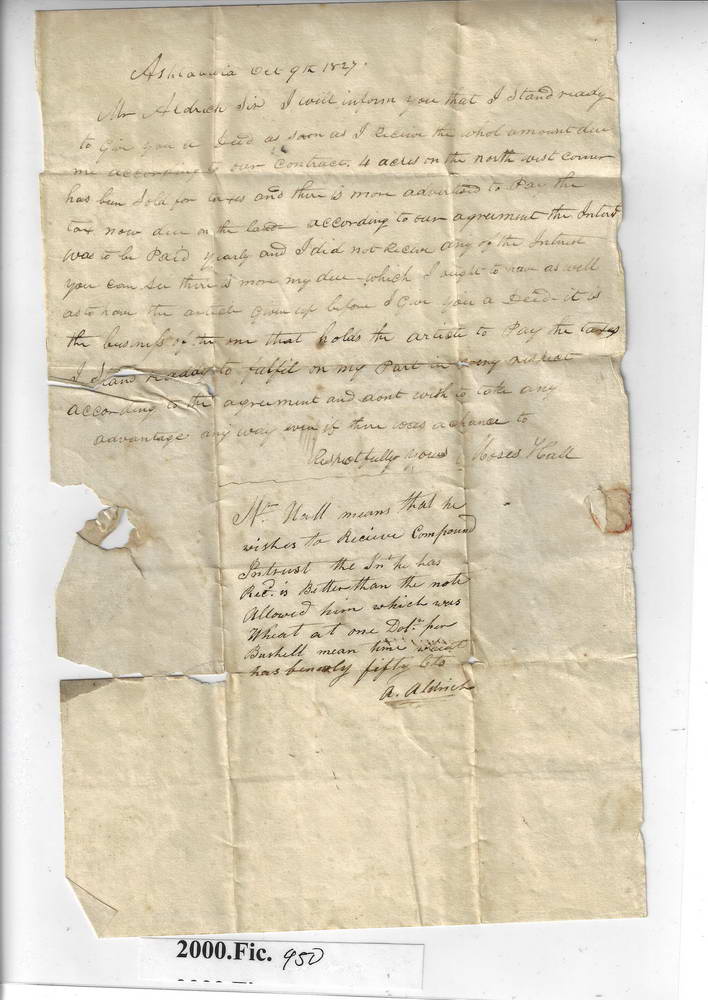 Ashtabula Oct 9th 1827.
Mr Aldrich Sir I will inform you that I Stand ready
to Give you a Deed as soon as I Receive the whol amount due
me according to our Contract. 4 acres on the north west corner
has been Sold for taxes and there is more advertised to Pay the
tax now due on the land according to our agreement the Interest
was to be Paid yearly and I did not Receive any of the Intrest
you can See there is more my due which I ought to have as well
as to have the article Given up before I Give you a Deed - it is
the business of the one that holds the article to Pay the taxes
I Stand ready to fulfil on my Part in every respect
according to the agreement and dont wish to take any
advantage any way even if there was a chance to
Respectfully yours Moses Hall
Mr. Hall means that he
wishes to Recieve Compound
Intrust the Int he has
Recd. is Better than the note
Allowed him which was
Wheat at one Dolr. per
Bushell mean time wheat
has ben only fifty Cts
A. Aldrich
2000.Fic. 950